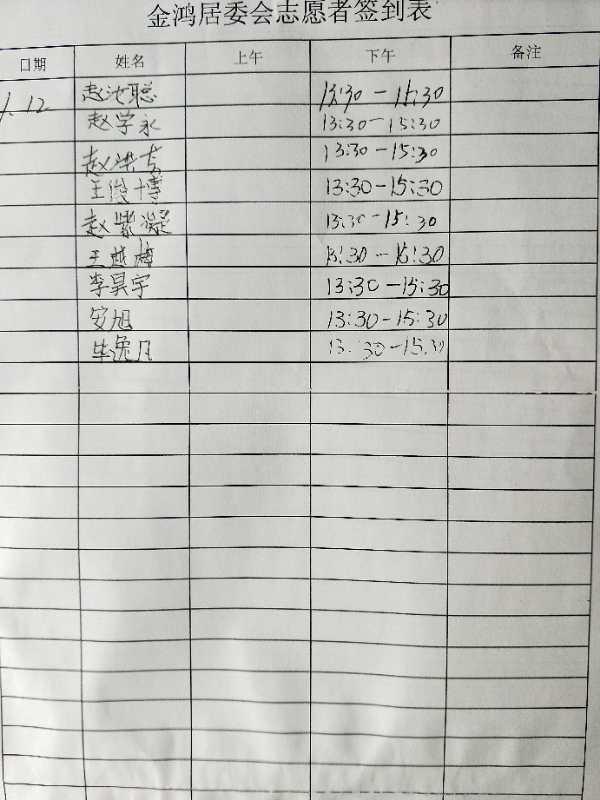 金鸿居委会志愿者签到表
日期 姓名 上午 下午 备注
1.12 赵汝聪 13:30-15:30
赵学永 13:30-15:30
赵洪 13:30-15:30
王俊博 13:30-15:30
赵紫凝 13:30-15:30
王越梅 13:30-15:30
李昊宇 13:30-15:30
安旭 13:30-15:30
毕逸凡 13:30-15:30